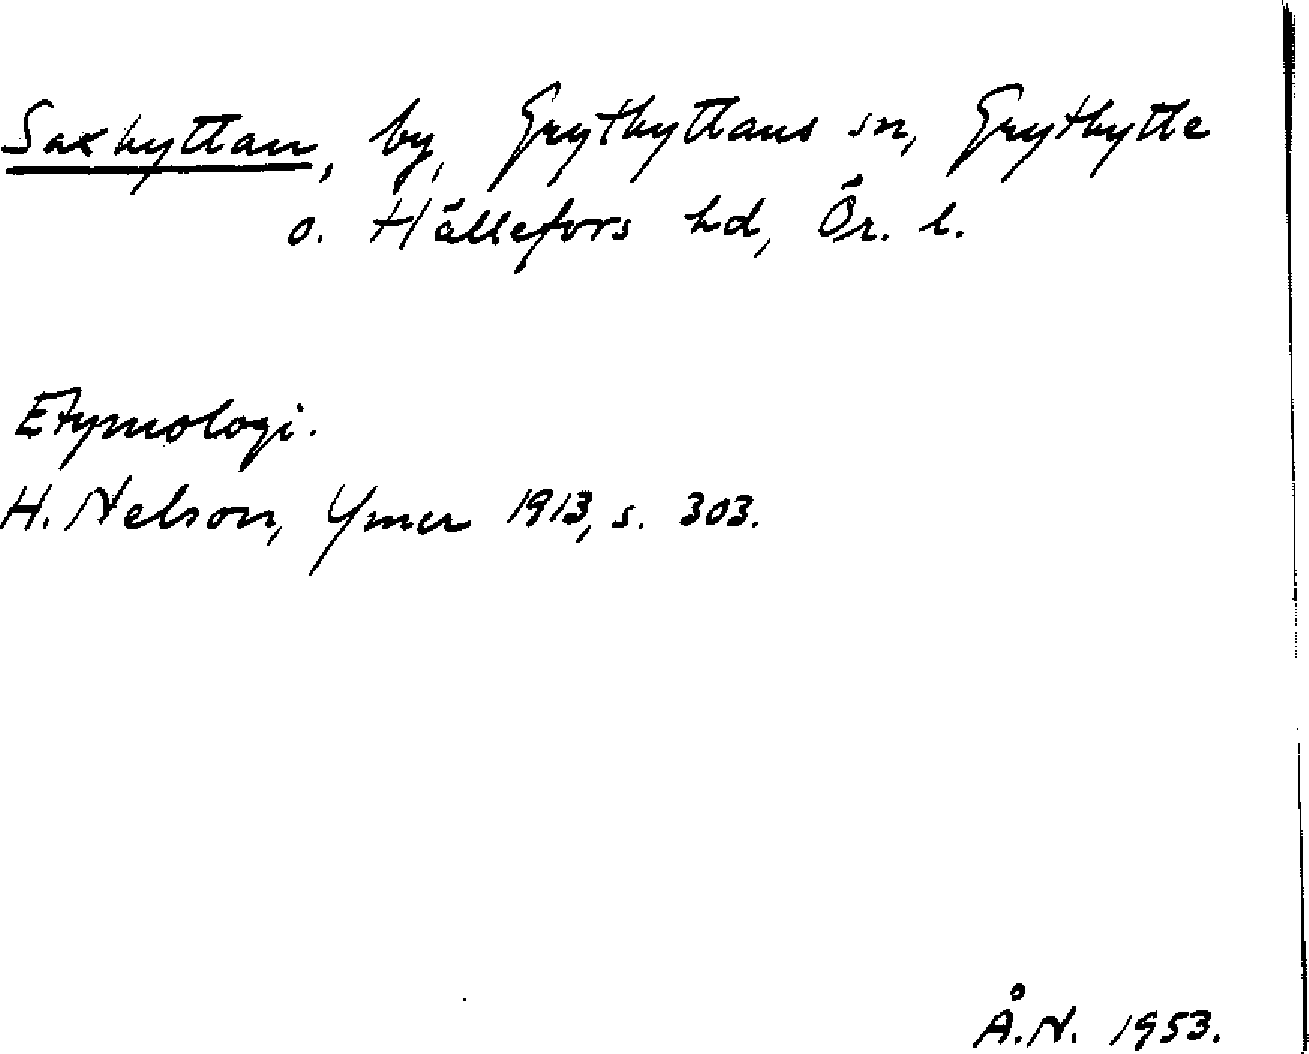 Saxhyttan, by, Grythyttans sn, Grythytte
o. Hällefors hd, Ör. l.
Etymologi.
H. Nelson, Ymer 1913, s. 303.
Å.N. 1953.